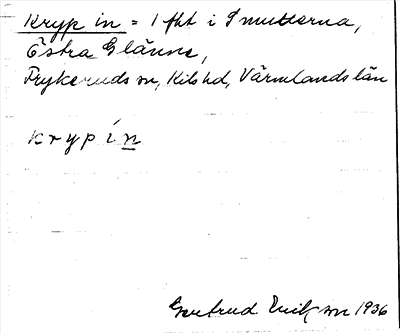 Kryp in = 1 fkt i Smutterna,
Östra Glänne,
Frykeruds sn, Kils hd, Värmlands län
k r y p í n
Gertrud Eriksson 1936